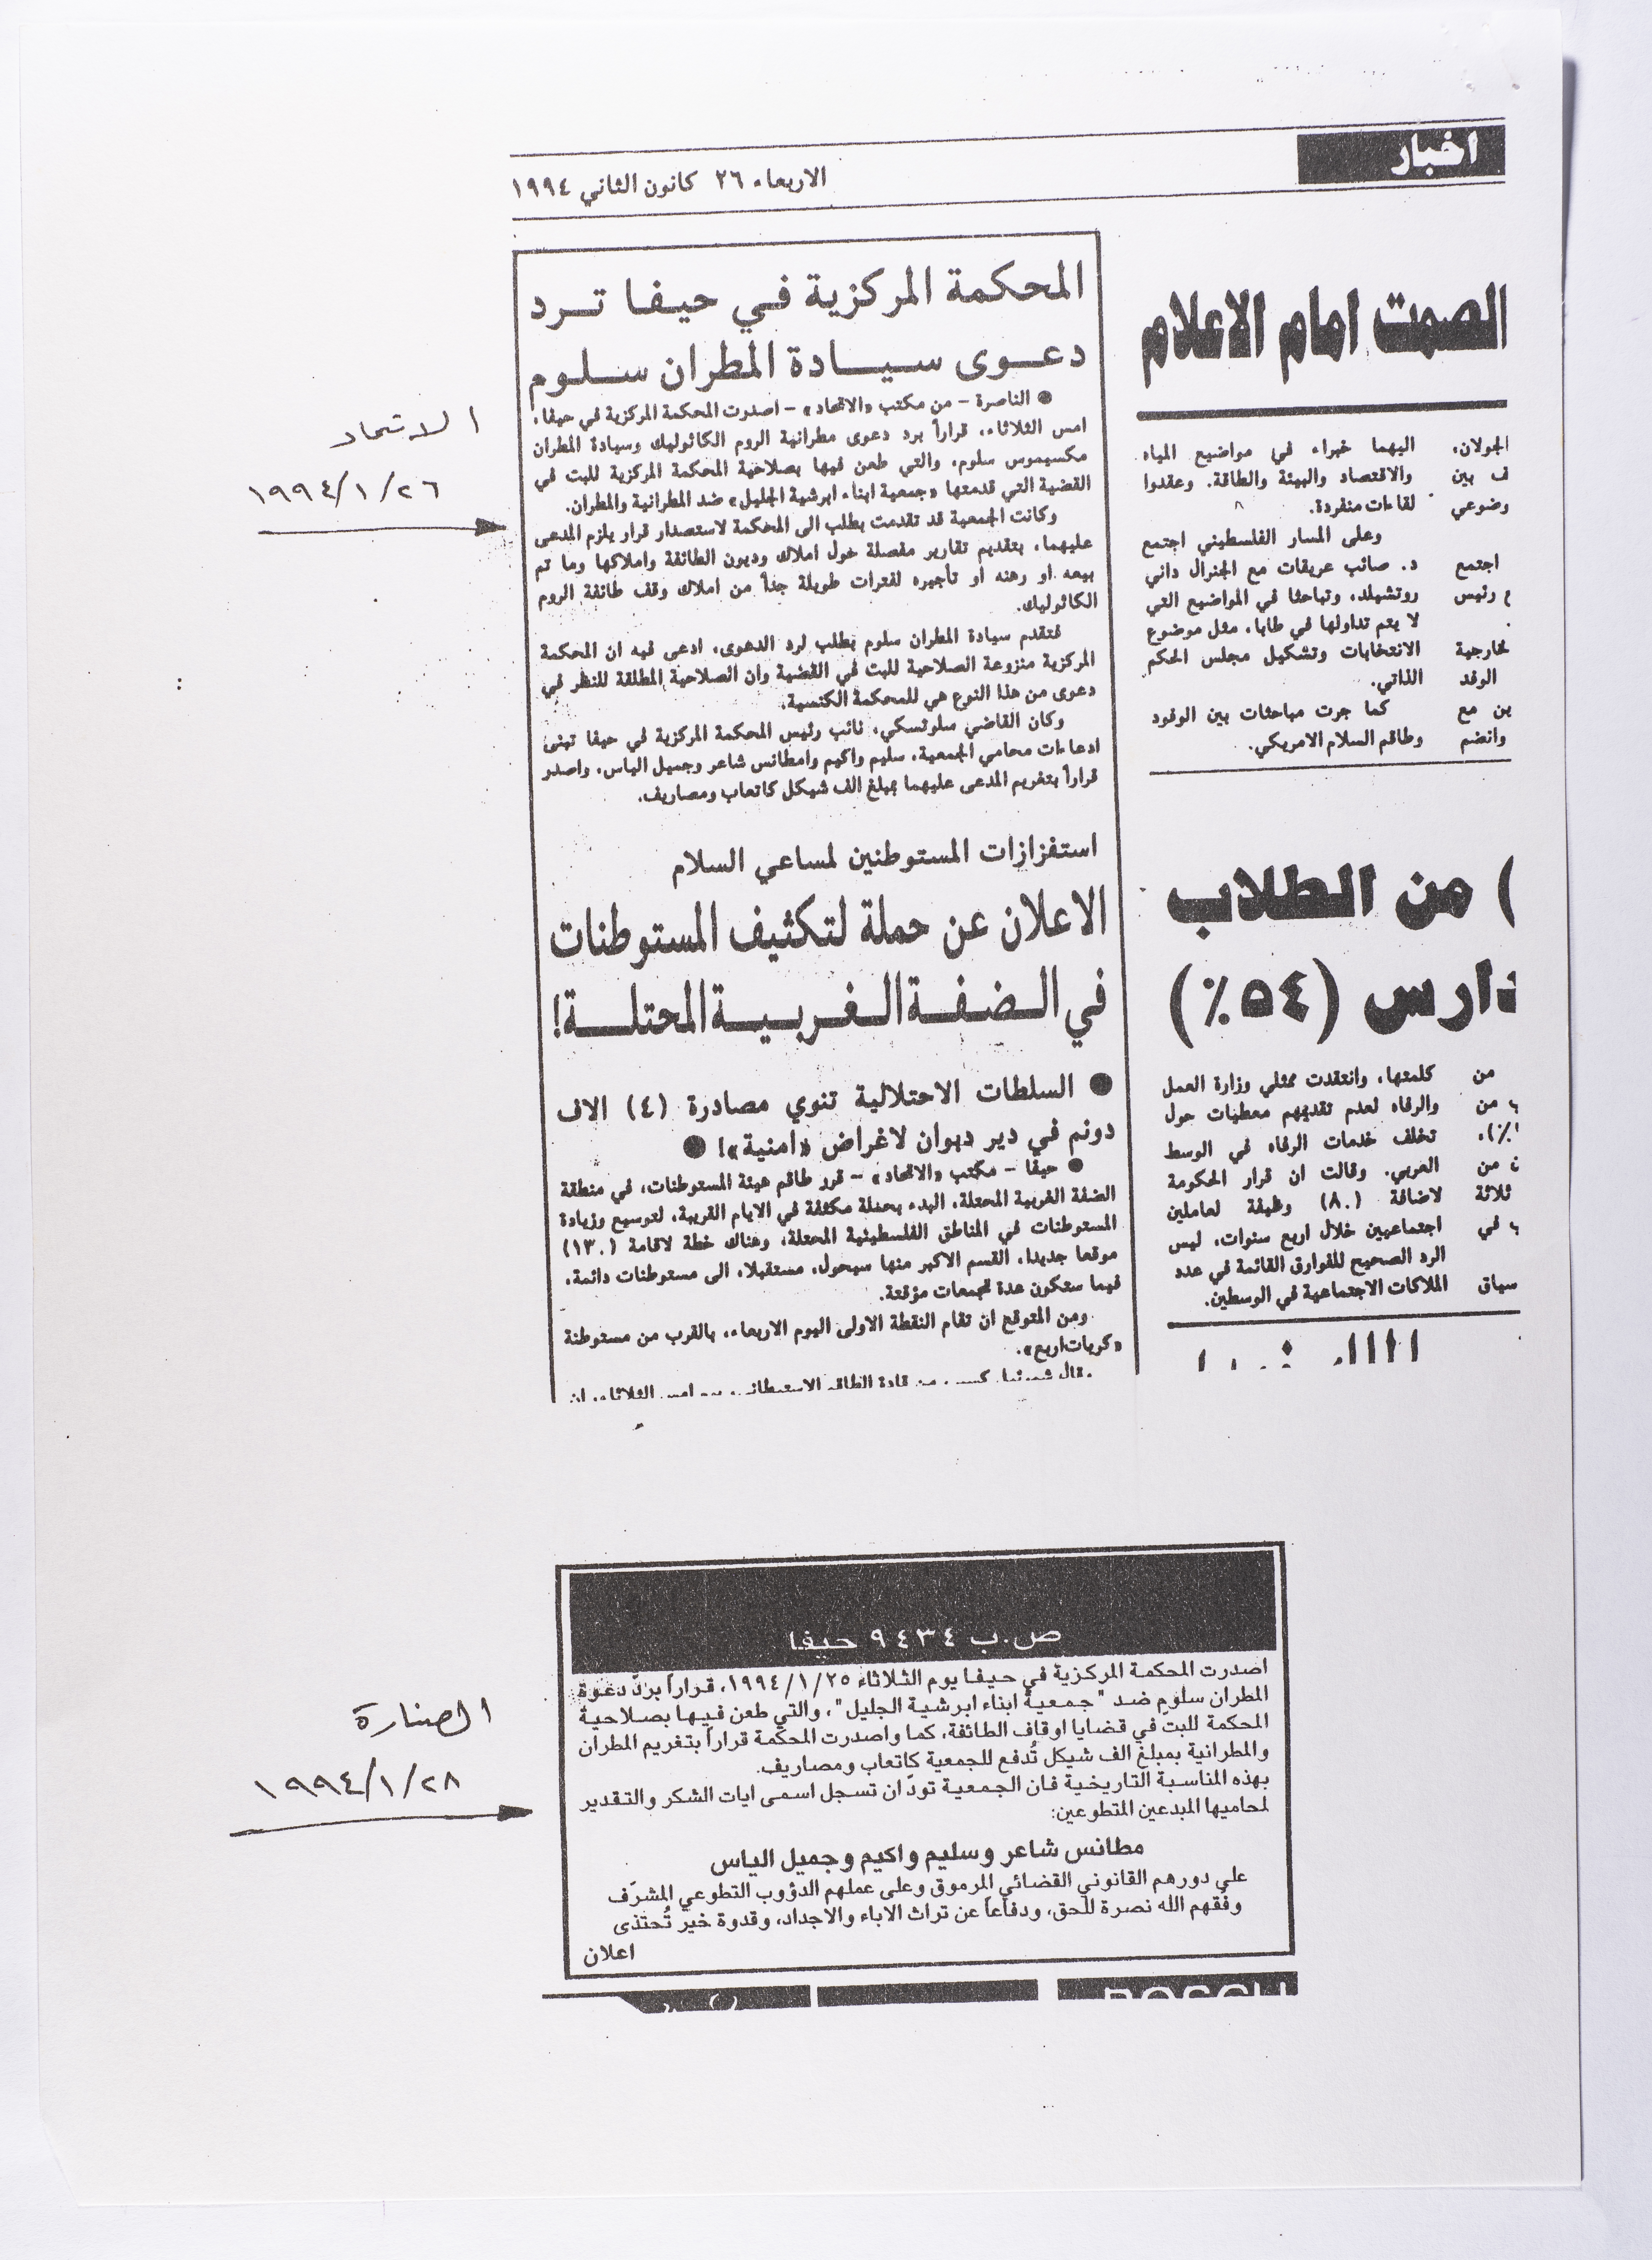 اخبار
الاربعاء ٢٦ كانون الثاني ١٩٩٤
الصمت امام الاعلام
الجولان، اليهما خبراء في مواضيع المياه
ف بين والاقتصاد والبيئة والطاقة. وعقدوا
وضوعي لقاءات منفردة.
وعلى المسار الفلسطيني اجتمع
اجتمع د. صائب عريقات مع الجنرال داني
م رئيس روتشيلد، وتباحثا في المواضيع التي
لا يتم تداولها في طابا، مثل موضوع
خارجية الانتخابات وتشكيل مجلس الحكم
الوفد الذاتي.
ين مع كما جرت مباحثات بين الوفود
وانضم وطاقم السلام الامريكي.
) من الطلاب
دارس (٥٤٪)
من كلمتها، وانتقدت ممثلي وزارة العمل
ب من والرفاه لعدم تقديمهم معطيات حول
٪)، تخلف خدمات الرفاه في الوسط
ن من العربي. وقالت ان قرار الحكومة
ثلاثة لاضافة (٨٠) وظيفة لعاملين
ب في اجتماعيين خلال اربع سنوات، ليس
الرد الصحيح للفوارق القائمة في عدد
سياق الملاكات الاجتماعية في الوسطين.
المحكمة المركزية في حيفا ترد
دعوى سيادة المطران سلوم
● الناصرة – من مكتب «الاتحاد» – اصدرت المحكمة المركزية في حيفا،
امس الثلاثاء، قراراً برد دعوى مطرانية الروم الكاثوليك وسيادة المطران
مكسيموس سلوم، والتي طعن فيها بصلاحية المحكمة المركزية للبت في
القضية التي قدمتها «جمعية ابناء ابرشية الجليل» ضد المطرانية والمطران.
وكانت الجمعية قد تقدمت بطلب الى المحكمة لاستصدار قرار يلزم المدعى
عليهما، بتقديم تقارير مفصلة حول املاك وديون الطائفة واملاكها وما تم
بيعه او رهنه او تأجيره لفترات طويلة جداً من املاك وقف طائفة الروم
الكاثوليك.
فتقدم سيادة المطران سلوم بطلب لرد الدعوى، ادعى فيه ان المحكمة
المركزية منزوعة الصلاحية للبت في القضية وان الصلاحية المطلقة للنظر في
دعوى من هذا النوع هي للمحكمة الكنسية.
وكان القاضي سلوتسكي، نائب رئيس المحكمة المركزية في حيفا تبنى
ادعاءات محامي الجمعية، سليم واكيم وامطانس شاعر وجميل الياس، واصدر
قراراً بتغريم المدعى عليهما بمبلغ الف شيكل كاتعاب ومصاريف.
استفزازات المستوطنين لمساعي السلام
الاعلان عن حملة لتكثيف المستوطنات
في الضفة الغربية المحتلة!
● السلطات الاحتلالية تنوي مصادرة (٤) الاف
دونم في دير ديوان لاغراض «امنية»! ●
● حيفا – مكتب «الاتحاد» – قرر طاقم هيئة المستوطنات، في منطقة
الضفة الغربية المحتلة، البدء بحملة مكثفة في الايام القريبة، لتوسيع وزيادة
المستوطنات في المناطق الفلسطينية المحتلة، وهناك خطة لاقامة (١٣٠)
موقعا جديدا، القسم الاكبر منها سيحول، مستقبلا، الى مستوطنات دائمة،
فيما ستكون عدة تجمعات مؤقتة.
ومن المتوقع ان تقام النقطة الاولى اليوم الاربعاء، بالقرب من مستوطنة
«كريات اربع».
الاتحاد
١٩٩٤/١/٢٦
ص.ب ٩٤٣٤ حيفا
اصدرت المحكمة المركزية في حيفا يوم الثلاثاء ١٩٩٤/١/٢٥، قراراً بردّ دعوة
المطران سلوم ضد "جمعية ابناء ابرشية الجليل"، والتي طعن فيها بصلاحية
المحكمة للبت في قضايا اوقاف الطائفة، كما واصدرت المحكمة قراراً بتغريم المطران
والمطرانية بمبلغ الف شيكل تُدفع للجمعية كاتعاب ومصاريف.
بهذه المناسبة التاريخية فان الجمعية تودّ ان تسجل اسمى ايات الشكر والتقدير
لمحاميها المبدعين المتطوعين:
مطانس شاعر وسليم واكيم وجميل الياس
على دورهم القانوني القضائي المرموق وعلى عملهم الدؤوب التطوعي المشرّف
وفّقهم الله نصرة للحق، ودفاعاً عن تراث الاباء والاجداد، وقدوة خير تُحتذى
اعلان
الصنارة
١٩٩٤/١/٢٨
BOSCH